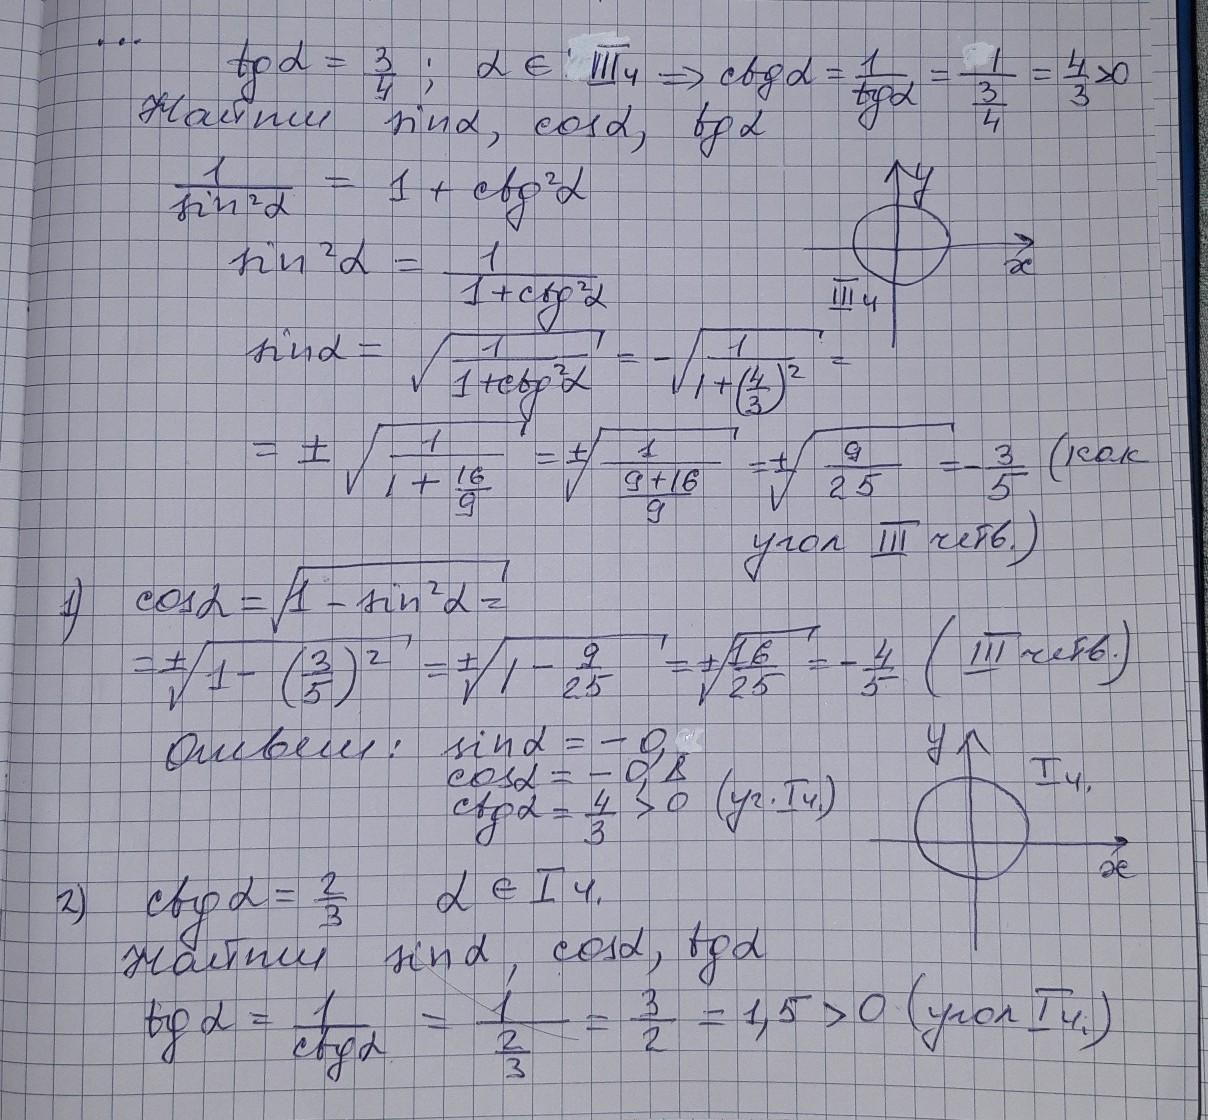 ...
tgα = 3/4 ; α ∈ III ч ⇒ ctgα = 1/tgα = 1/(3/4) = 4/3 >0
Найти sinα, cosα, tgα
1/sin²α = 1 + ctg²α
y
sin²α = 1/(1+ctg²α)
x
III ч
sinα = √(1/(1+ctg²α)) = -√(1/(1+(4/3)²)) =
= ± √(1/(1+16/9)) = ±√(1/((9+16)/9)) = ±√(9/25) = -3/5 (как
угол III четв.)
1) cosα = √(1 - sin²α =
= ±√(1-(3/5)²) = ±√(1 - 9/25) = ±√(16/25) = -4/5 (III четв.)
Ответ: sinα = -0,
cosα = -0,8
ctgα = 4/3 > 0 (уг. I ч.)
y
I ч.
x
2) ctgα = 2/3 α ∈ I ч.
Найти sinα, cosα, tgα
tgα = 1/ctgα = 1/(2/3) = 3/2 = 1,5 > 0 (угол I ч.)